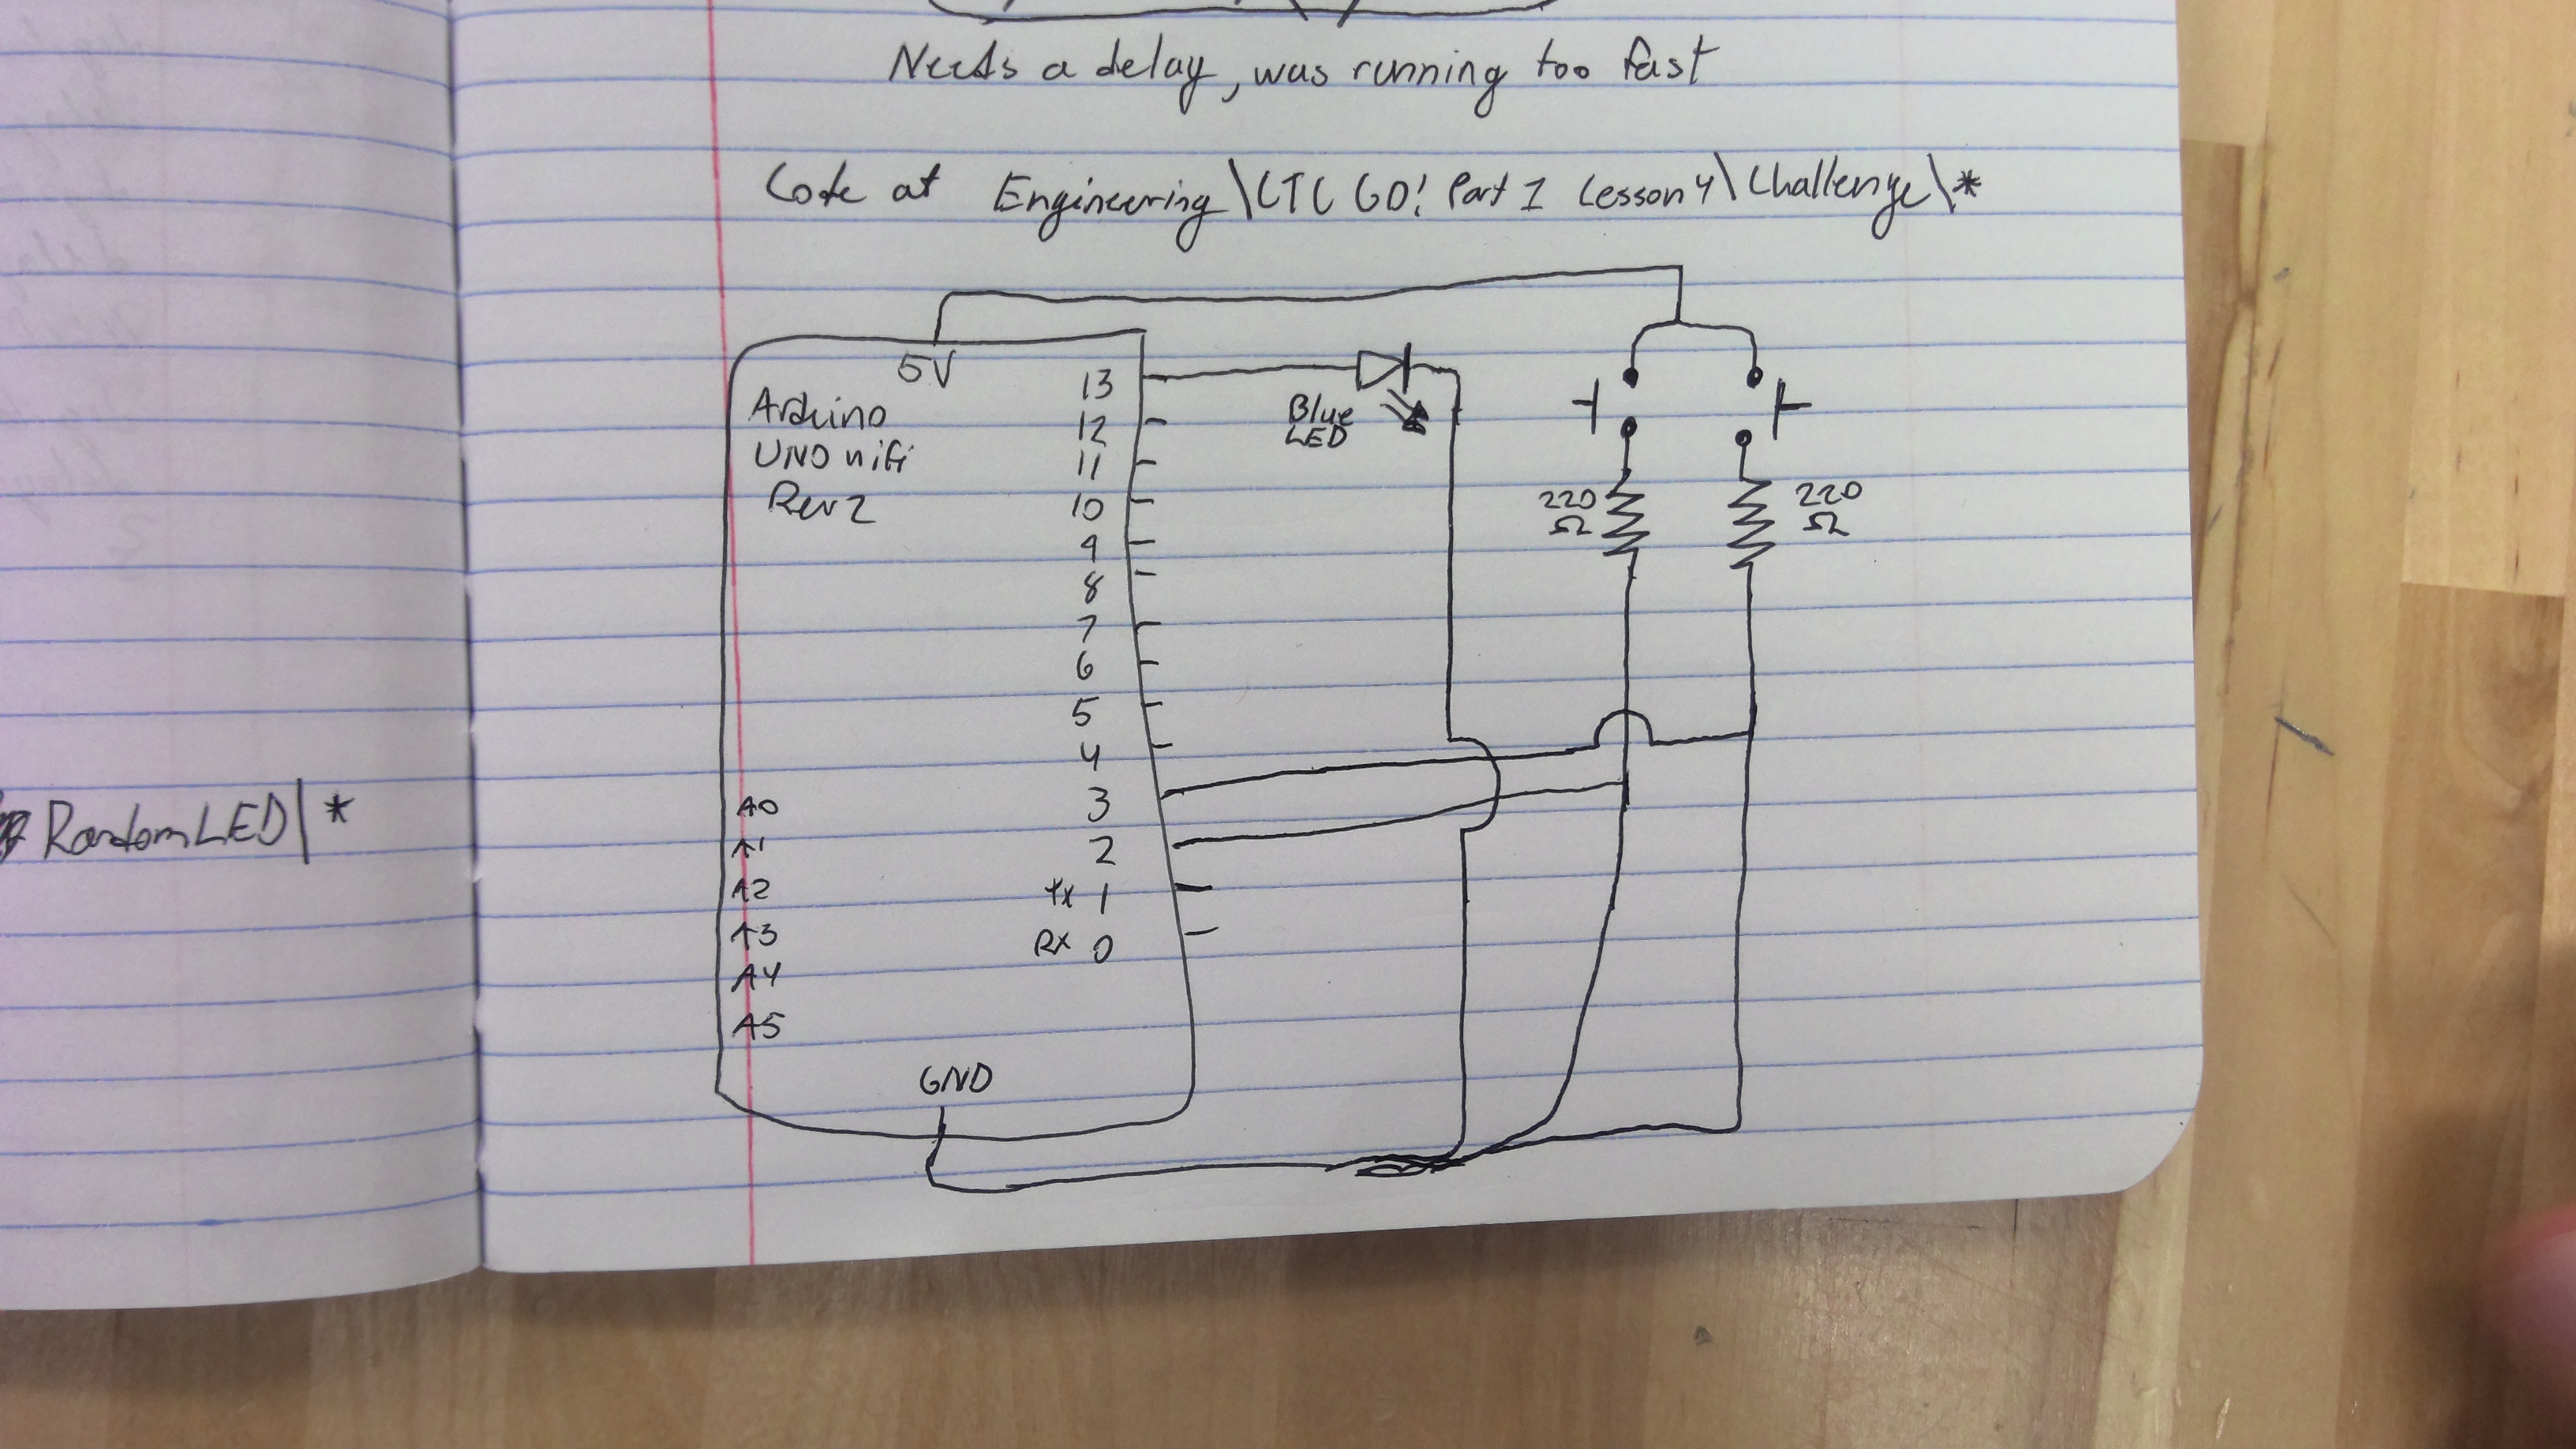 Needs a delay, was running too fast
Code at Engineering\CTC GO! Part 1 Lesson 4\Challenge\*
5V
Arduino
UNO wifi
Rev 2
13
12
11
10
9
8
7
6
5
4
3
2
Tx 1
RX 0
A0
A1
A2
A3
A4
A5
GND
Blue
LED
220
Ω
220
Ω
RandomLED\*